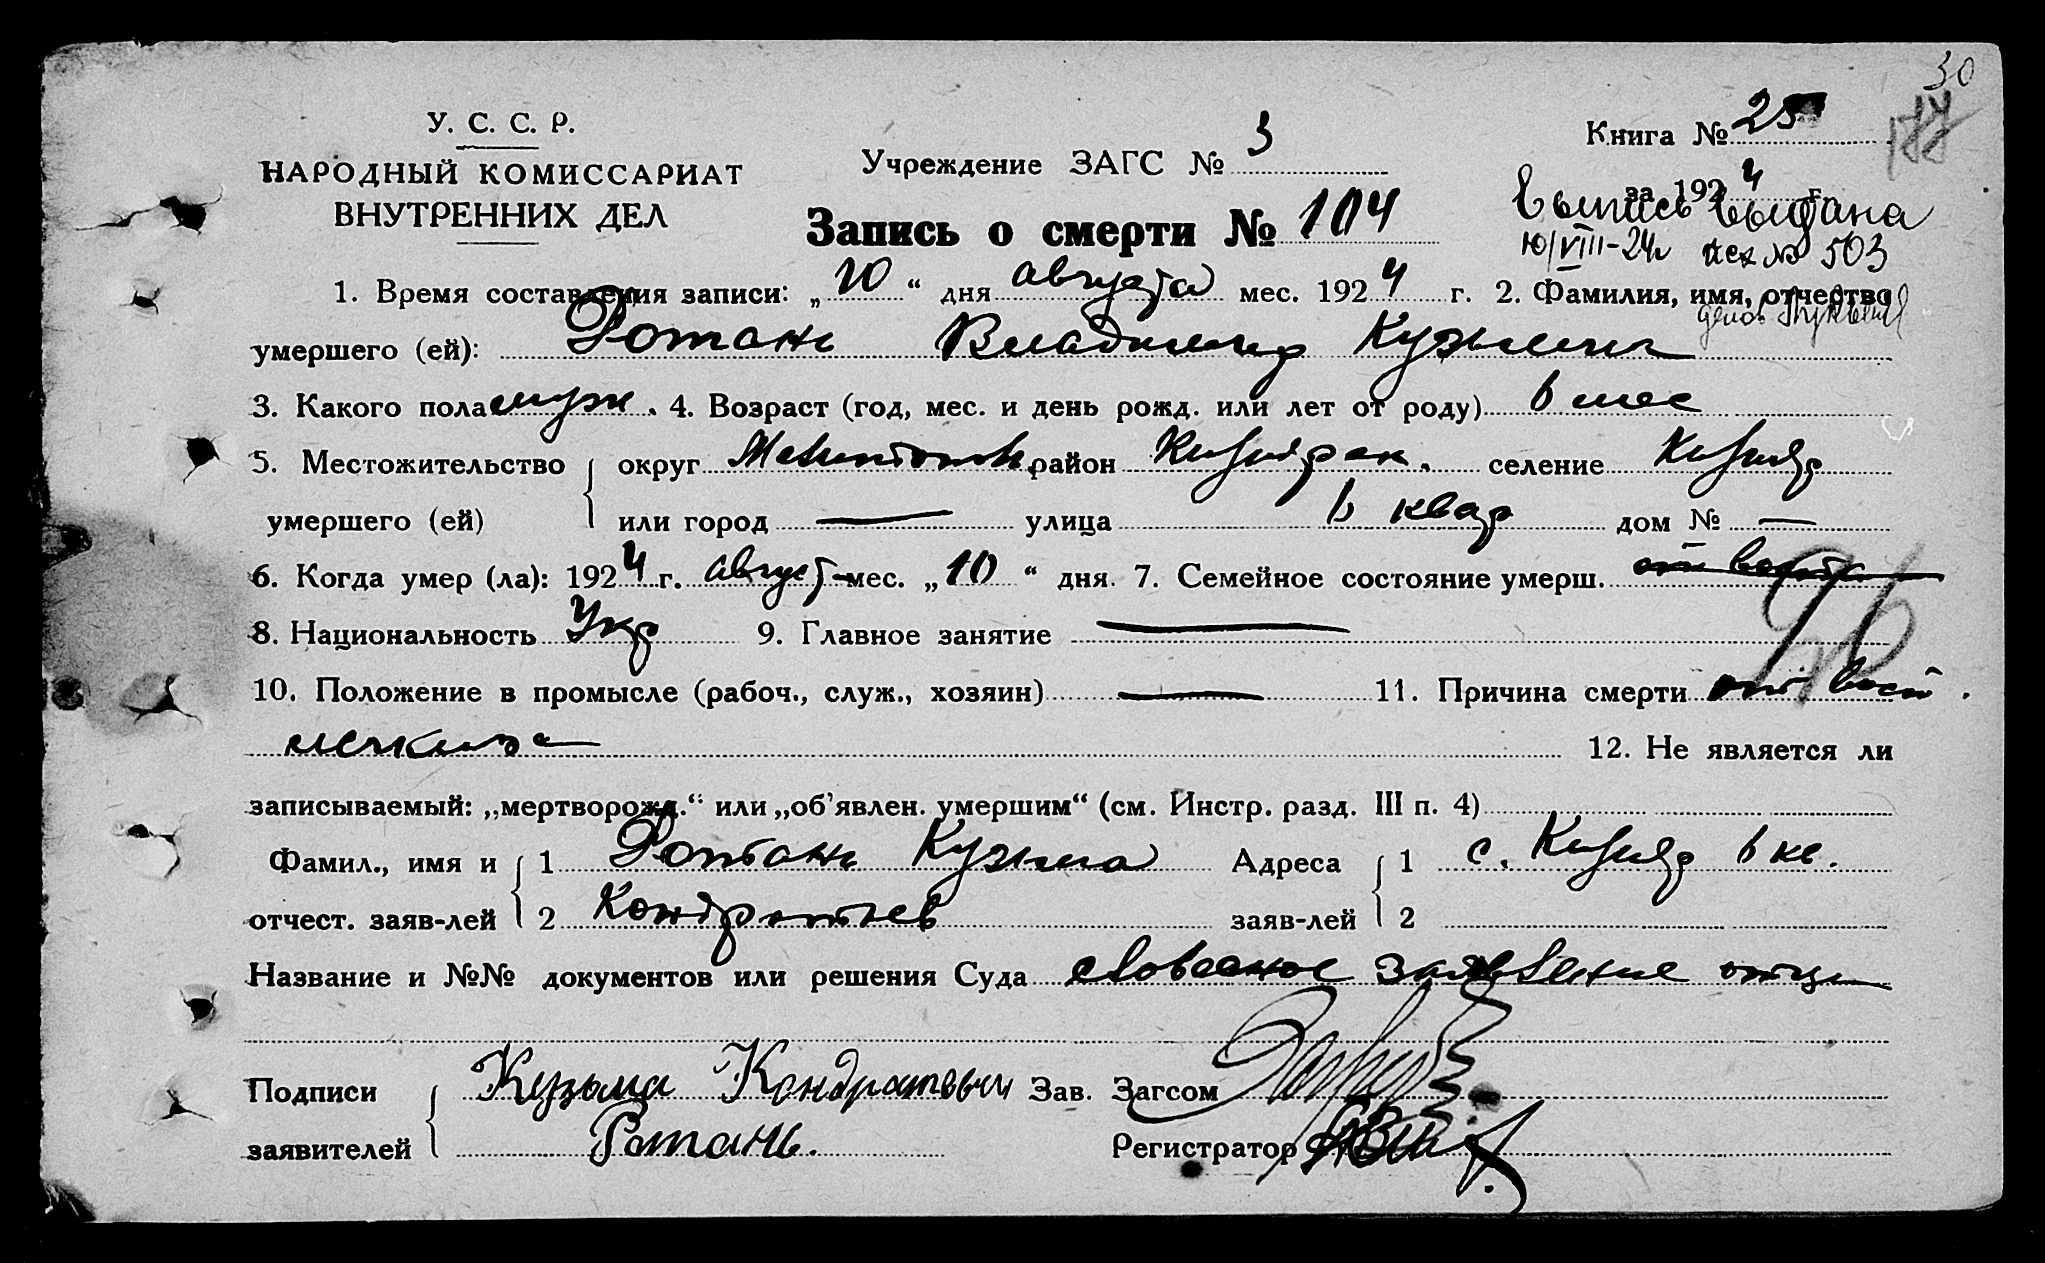 30
177
У. С. С. Р.
НАРОДНЫЙ КОМИССАРИАТ
ВНУТРЕННИХ ДЕЛ
Учреждение ЗАГС № 3
Книга № 25
за 1924 г.
Запись о смерти № 104
Выпись выдана
10/VIII-24г исх № 503
1. Время составления записи: „10“ дня августа мес. 1924 г. 2. Фамилия, имя, отчество
умершего (ей): Ротань Владимир Кузьмич
3. Какого пола муж. 4. Возраст (год, мес. и день рожд. или лет от роду) 6 мес
5. Местожительство округ Мелитопольск. район Кизиярск. селение Кизияр
умершего (ей) или город — улица 6 квар дом № —
6. Когда умер (ла): 1924 г. август мес. „10“ дня. 7. Семейное состояние умерш.
8. Национальность Укр 9. Главное занятие —
10. Положение в промысле (рабоч., служ., хозяин) — 11. Причина смерти от восп.
12. Не является ли
записываемый: „мертворожд.“ или „об’явлен. умершим“ (см. Инстр. разд. III п. 4)
Фамил., имя и 1 Ротань Кузьма Адреса 1 с. Кизияр 6 кв.
отчест. заяв-лей 2 Кондратьев заяв-лей 2
Название и №№ документов или решения Суда словесное заявление отца
Подписи Кузьма Кондратьвич Зав. Загсом
заявителей Ротань. Регистратор